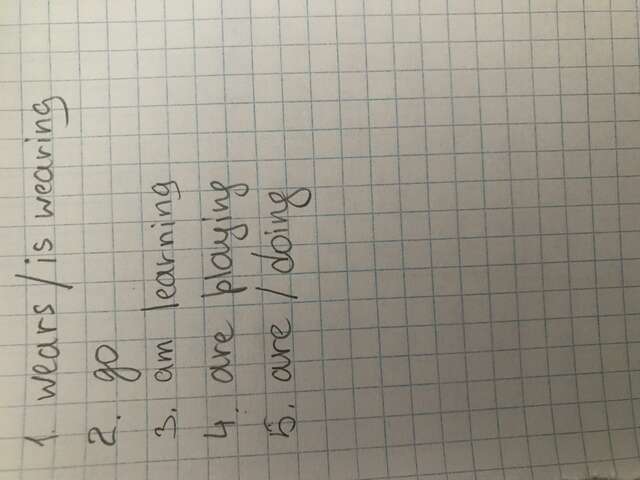 1. wears / is wearing
2. go
3. am learning
4. are playing
5. are / doing